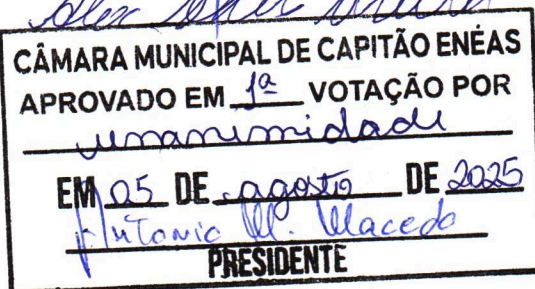 CÂMARA MUNICIPAL DE CAPITÃO ENÉAS
APROVADO EM 1ª VOTAÇÃO POR
unanimidade
EM 05 DE agosto DE 2025
Antonio M. Macedo
PRESIDENTE